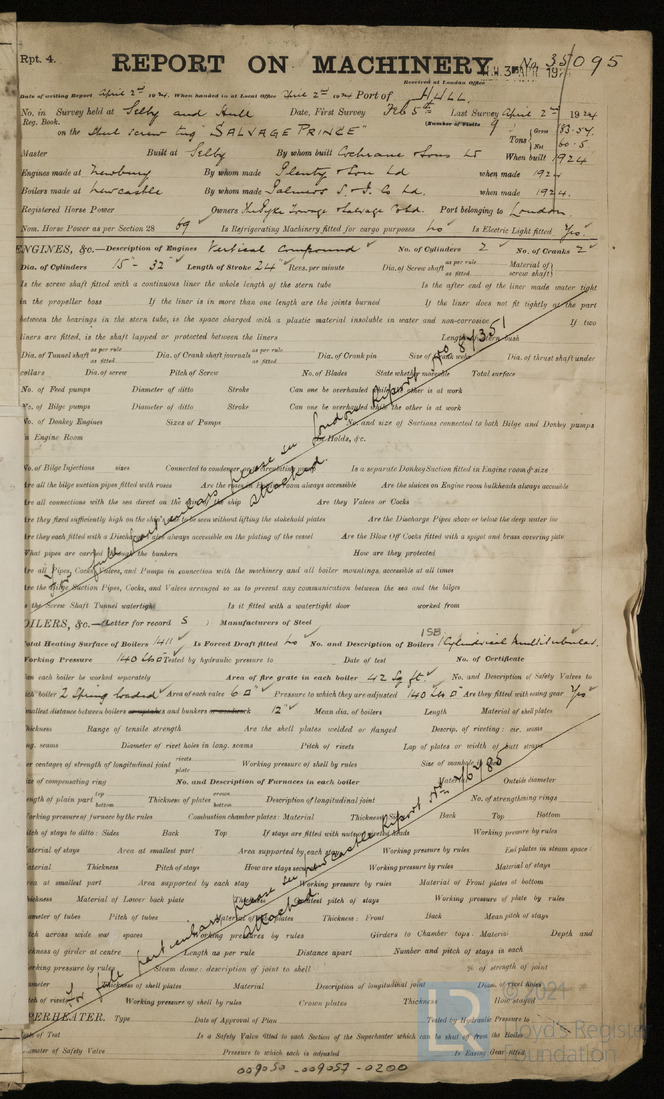 Rpt. 4.
REPORT ON MACHINERY. No. 35095
Received at London Office
Date of writing Report April 2nd 1924. When handed in at Local Office April 2nd 1924 Port of HULL.
No. in Survey held at Selby and Hull Date, First Survey Feb 5th Last Survey April 2nd 1924
Reg. Book. (Number of Visits 9
on the Steel screw tug "SALVAGE PRINCE" Tons { Gross 83.57. Net 60.5.
Master Built at Selby By whom built Cochrane & Sons Ld When built 1924
Engines made at Newbury By whom made Plenty & Son Ld when made 1924
Boilers made at Newcastle By whom made Palmers S. & I. Co Ld. when made 1924.
Registered Horse Power Owners Port belonging to London.
Nom. Horse Power as per Section 28 69 Is Refrigerating Machinery fitted for cargo purposes No Is Electric Light fitted Yes.
ENGINES, &c.—Description of Engines Vertical Compound No. of Cylinders 2 No. of Cranks 2
Dia. of Cylinders 15" - 32" Length of Stroke 24" Revs. per minute Dia. of Screw shaft as per rule as fitted Material of screw shaft
Is the screw shaft fitted with a continuous liner the whole length of the stern tube Is the after end of the liner made water tight
in the propeller boss If the liner is in more than one length are the joints burned If the liner does not fit tightly at the part
between the bearings in the stern tube, is the space charged with a plastic material insoluble in water and non-corrosive If two
liners are fitted, is the shaft lapped or protected between the liners Length of stern bush
Dia. of Tunnel shaft as per rule as fitted Dia. of Crank shaft journals as per rule as fitted Dia. of Crank pin Size of Crank webs Dia. of thrust shaft under
collars Dia. of screw Pitch of Screw No. of Blades State whether moveable Total surface
No. of Feed pumps Diameter of ditto Stroke Can one be overhauled while the other is at work
No. of Bilge pumps Diameter of ditto Stroke Can one be overhauled while the other is at work
No. of Donkey Engines Sizes of Pumps No. and size of Suctions connected to both Bilge and Donkey pumps
in Engine Room In Holds, &c.
For full particulars please see London Report No 87351 attached.
No. of Bilge Injections sizes Connected to condenser, or to circulating pump Is a separate Donkey Suction fitted in Engine room & size
Are all the bilge suction pipes fitted with roses Are the roses in Engine room always accessible Are the sluices on Engine room bulkheads always accessible
Are all connections with the sea direct on the skin of the ship Are they Valves or Cocks
Are they fixed sufficiently high on the ship's side to be seen without lifting the stokehold plates Are the Discharge Pipes above or below the deep water line
Are they each fitted with a Discharge Valve always accessible on the plating of the vessel Are the Blow Off Cocks fitted with a spigot and brass covering plate
What pipes are carried through the bunkers How are they protected
Are all Pipes, Cocks, Valves, and Pumps in connection with the machinery and all boiler mountings, accessible at all times
Are the Bilge Suction Pipes, Cocks, and Valves arranged so as to prevent any communication between the sea and the bilges
Is the Screw Shaft Tunnel watertight Is it fitted with a watertight door worked from
BOILERS, &c.—(Letter for record S ) Manufacturers of Steel
Total Heating Surface of Boilers 1411 Is Forced Draft fitted No No. and Description of Boilers 1SB 1 Cylindrical Multitubular.
Working Pressure 140 lbs Tested by hydraulic pressure to Date of test No. of Certificate
Can each boiler be worked separately Area of fire grate in each boiler 42 Sq ft. No. and Description of Safety Valves to
each boiler 2 Spring loaded Area of each valve 6 □" Pressure to which they are adjusted 140 lbs □" Are they fitted with easing gear Yes
Smallest distance between boilers or uptakes and bunkers or woodwork 12" Mean dia. of boilers Length Material of shell plates
Thickness Range of tensile strength Are the shell plates welded or flanged Descrip. of riveting: cir. seams
long. seams Diameter of rivet holes in long. seams Pitch of rivets Lap of plates or width of butt straps
Per centages of strength of longitudinal joint rivets plate Working pressure of shell by rules Size of manhole
Size of compensating ring No. and Description of Furnaces in each boiler Material Outside diameter
Length of plain part top bottom Thickness of plates crown bottom Description of longitudinal joint No. of strengthening rings
Working pressure of furnace by the rules Combustion chamber plates: Material Thickness: Sides Back Top Bottom
Pitch of stays to ditto: Sides Back Top If stays are fitted with nuts or riveted heads Working pressure by rules
Material of stays Area at smallest part Area supported by each stay Working pressure by rules End plates in steam space:
Material Thickness Pitch of stays How are stays secured Working pressure by rules Material of stays
Area at smallest part Area supported by each stay Working pressure by rules Material of Front plates at bottom
Thickness Material of Lower back plate Thickness Greatest pitch of stays Working pressure of plate by rules
Diameter of tubes Pitch of tubes Material of tube plates Thickness: Front Back Mean pitch of stays
Pitch across wide water spaces Working pressures by rules Girders to Chamber tops: Material Depth and
thickness of girder at centre Length as per rule Distance apart Number and pitch of stays in each
Working pressure by rules Steam dome: description of joint to shell % of strength of joint
Diameter Thickness of shell plates Material Description of longitudinal joint Diam. of rivet holes
Pitch of rivets Working pressure of shell by rules Crown plates Thickness How stayed
For full particulars please see Newcastle Report No 76985 attached.
SUPERHEATER. Type Date of Approval of Plan Tested by Hydraulic Pressure to
Date of Test Is a Safety Valve fitted to each Section of the Superheater which can be shut off from the Boiler
Diameter of Safety Valve Pressure to which each is adjusted Is Easing Gear fitted
009050 - 009057 - 0200
© 2021
Lloyd's Register
Foundation